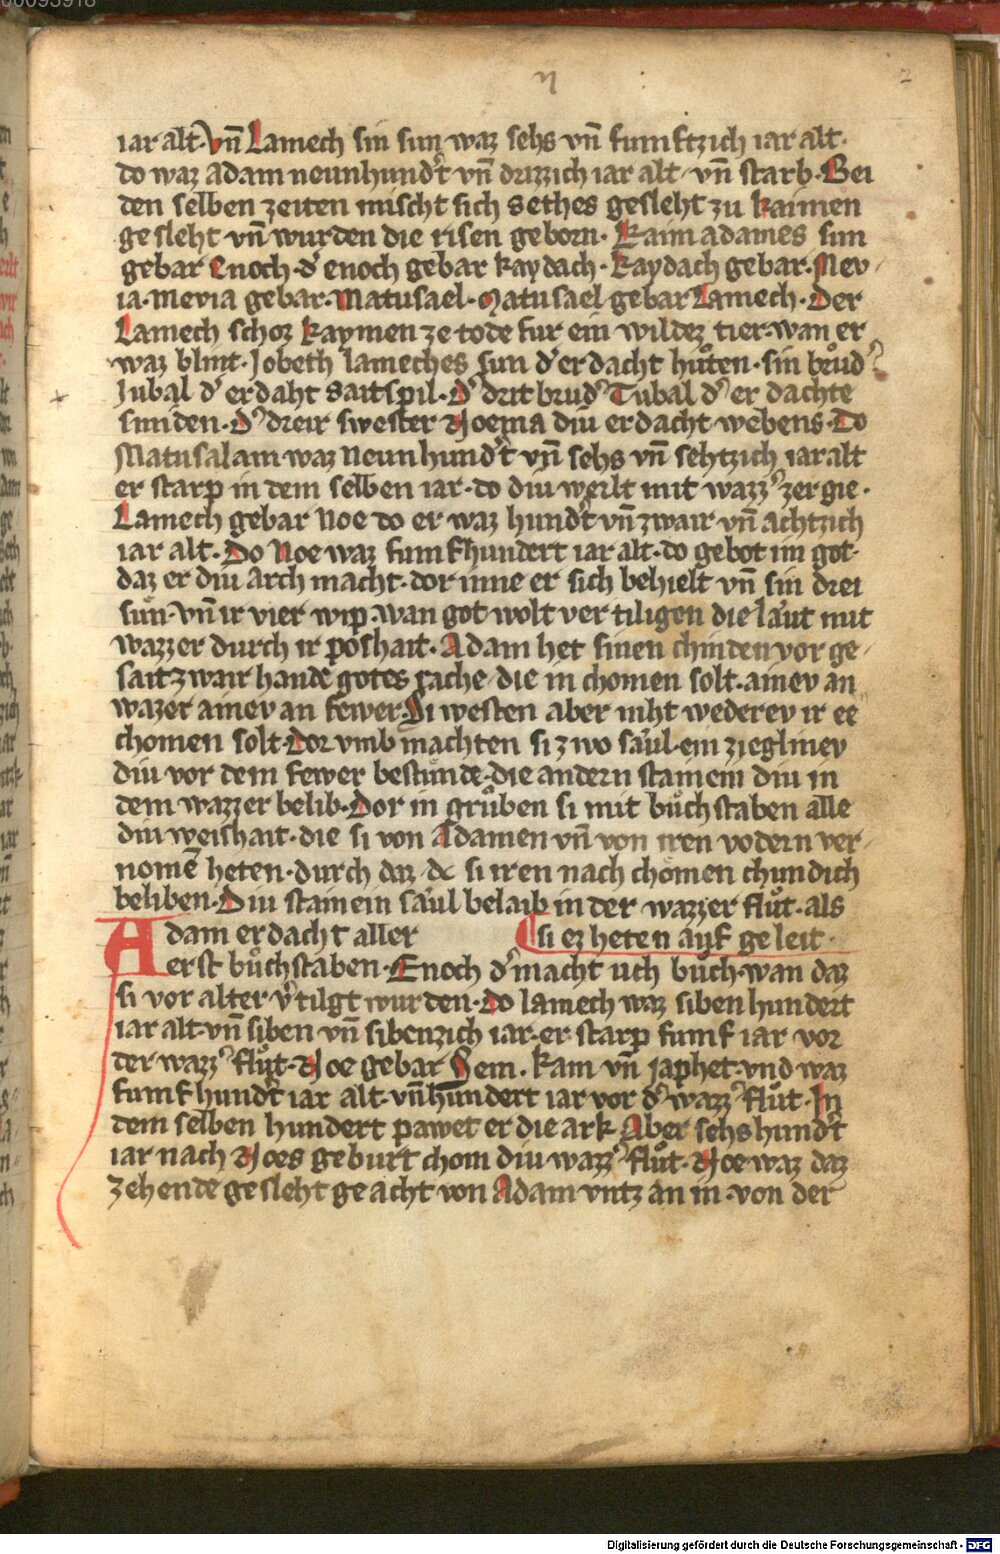 00093918
n
2
iar alt· vn̄ Lamech sin sun waz sehs vn̄ funftzich iar alt·
do waz Adam neunhund't vn̄ drizzich iar alt· vn̄ starb· Bei
den selben zeiten mischt sich sethes gesleht zu kaimen
gesleht vn̄ wurden die risen geborn· Kaim adames sun
gebar Enoch· d' enoch gebar kaydach· Kaydach gebar· Mev-
ia· mevia gebar· Matusael· Matusael gebar Lamech· Der
Lamech schoz kaymen ze tode fur ein wildez tier· wan er
waz blint· Jobeth lameches sun d' erdacht hůten· sin brůd'
Jubal d' erdaht saitspil· D' drit brud' Tubal d' er dachte
smiden· D' dreir swester Noema diu erdacht webens· Do
Matusalam waz neunhund't vn̄ sehs vn̄ sehtzich iar alt
er starp in dem selben iar· do diu werlt mit wazz' zergie·
Lamech gebar Noe do er waz hund't vn̄ zwair vn̄ achtzich
iar alt· Do Noe waz funfhundert iar alt· do gebot im got·
daz er diu arch macht· dor inne er sich behielt vn̄ sin drei
sůn· vn̄ ir vier wip· wan got wolt vertiligen die la͛ut mit
wazzer durch ir poshait· Adam het sinen chinden vor ge-
sait zwair hande gotes rache· die in chomen solt· ainev an
wazer ainev an fewer· Si westen aber niht wederev ir ee
chomen solt· Dor vmb machten si zwo sa͛ul· ein zieglinev
diu vor dem fewer bestunde· die andern stainein diu in
dem wazzer belib· Dor in grůben si mit bůchstaben alle
diu weishait· die si von Adamen vn̄ von iren vodern ver-
nomē heten· durch daz· dc si iren nach chomen chundich
beliben· Diu stainein sa͛ul belaib in der wazzer flůt· als
Adam erdacht aller
si ez heten auf geleit·
erst bůchstaben· Enoch d' macht uch bůch· wan daz
si vor alter v'tilgt wurden· do lamech waz siben hundert
iar alt· vn̄ siben vn̄ sibenzich iar· er starp funf iar vor
der wazz' flůt· Noe gebar Sem· kam vn̄ japhet· vnd waz
funfhund't iar alt· vn̄ hundert iar vor d' wazz' flůt· In
dem selben hundert pawet er die ark· Aber sehshund't
iar nach Noes geburt chom diu wazz' flůt· Noe waz daz
zehende gesleht geacht von Adam vntz an in· von der
Digitalisierung gefördert durch die Deutsche Forschungsgemeinschaft - DFG